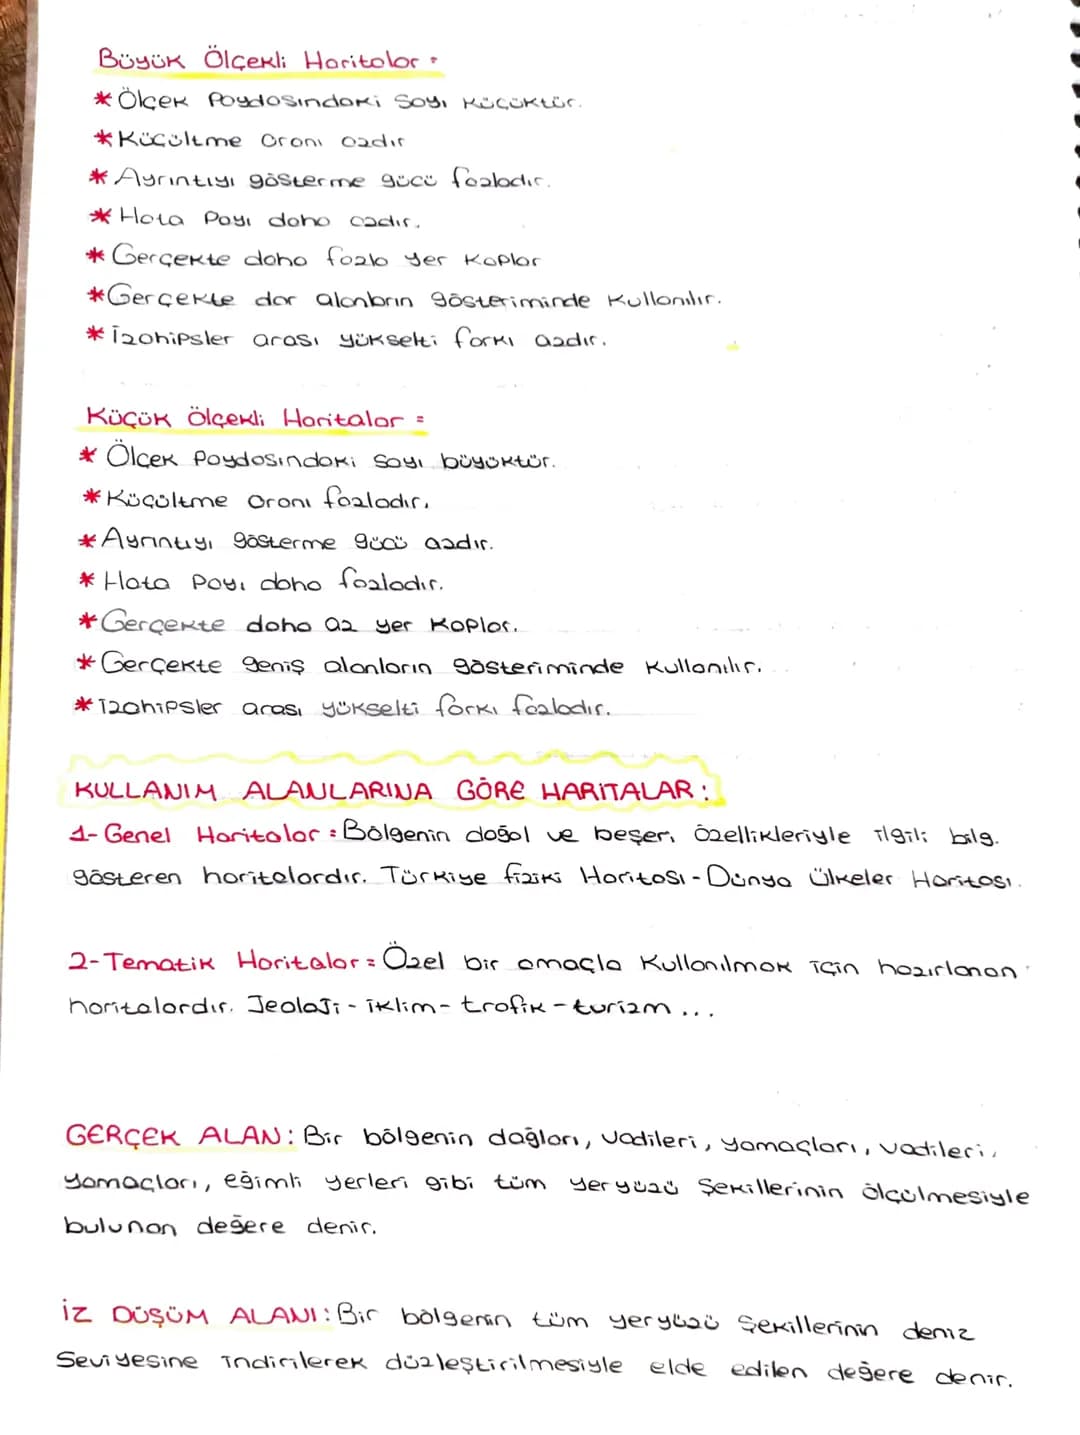 Büyük Ölçekli Haritalar:
* Ölçek Paydasındaki Sayı Küçüktür.
* Küçültme Oranı azdır
* Ayrıntıyı gösterme gücü fazladır.
* Hata Payı daha azdır.
* Gerçekte daha fazla yer Kaplar
* Gerçekte dar alanların gösteriminde Kullanılır.
* İzohipsler arası yükselti farkı azdır.
Küçük Ölçekli Haritalar =
* Ölçek Paydasındaki Sayı büyüktür.
* Küçültme oranı fazladır.
* Ayrıntıyı gösterme gücü azdır.
* Hata Payı daha fazladır.
* Gerçekte daha az yer Kaplar.
* Gerçekte geniş alanların gösteriminde Kullanılır.
* İzohipsler arası yükselti farkı fazladır.
KULLANIM ALANLARINA GÖRE HARİTALAR:
1- Genel Haritalar: Bölgenin doğal ve beşeri özellikleriyle ilgili bilg.
gösteren haritalardır. Türkiye fiziki Haritası - Dünya Ülkeler Haritası.
2- Tematik Haritalar = Özel bir amaçla Kullanılmak için hazırlanan
haritalardır. Jeoloji - iklim - trafik - turizm ...
GERÇEK ALAN: Bir bölgenin dağları, vadileri, yamaçları, vadileri,
yamaçları, eğimli yerleri gibi tüm yeryüzü Şekillerinin ölçülmesiyle
bulunan değere denir.
İZ DÜŞÜM ALANI: Bir bölgenin tüm yeryüzü Şekillerinin deniz
Seviyesine indirilerek düzleştirilmesiyle elde edilen değere denir.